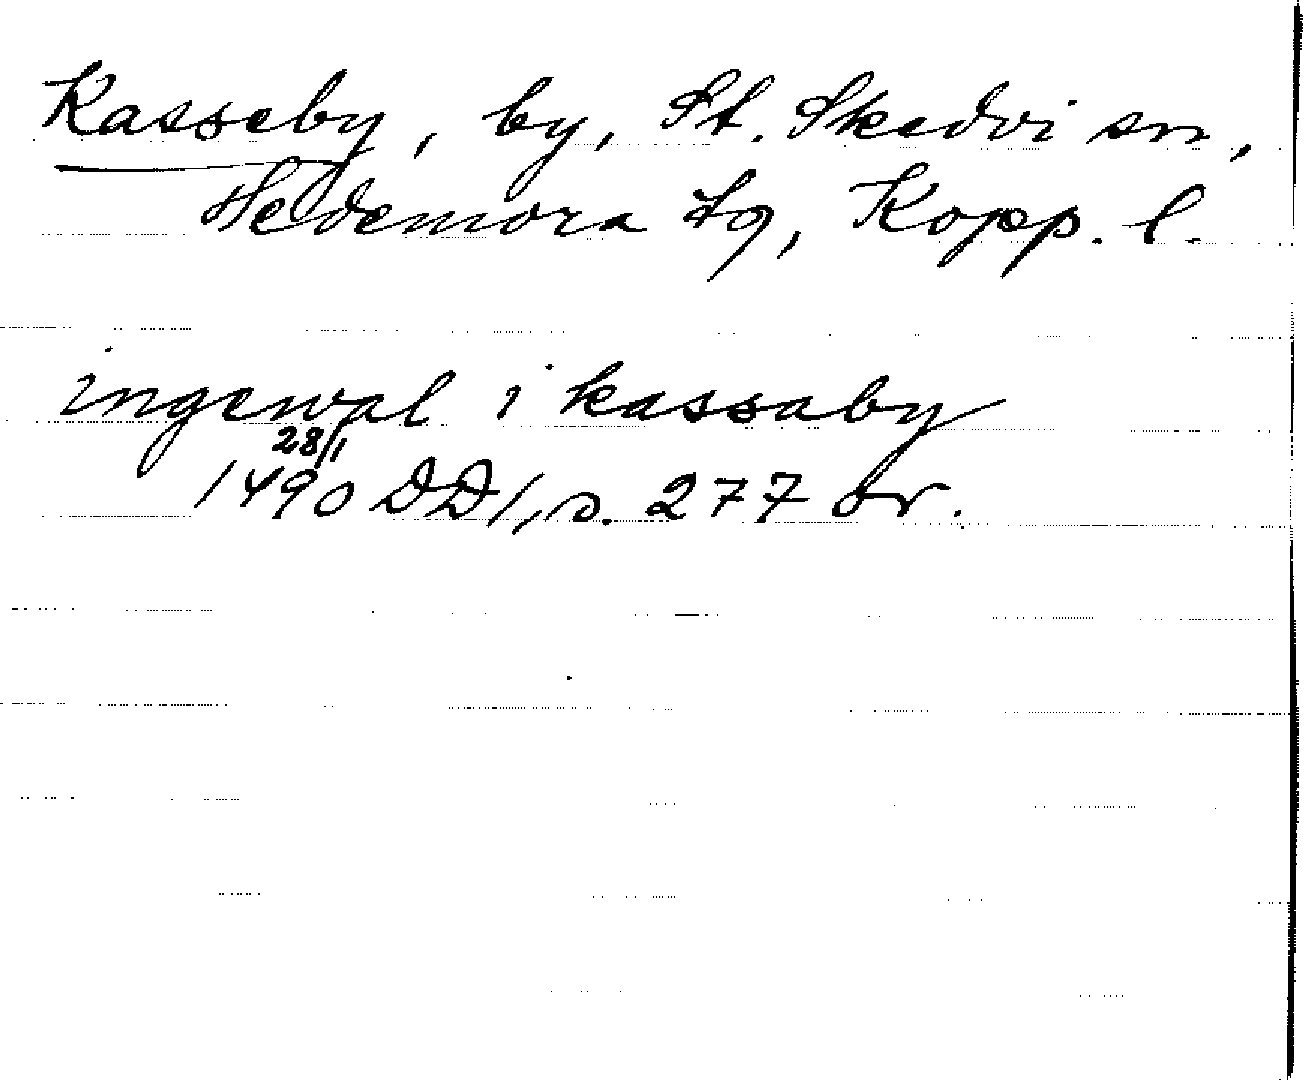 Kasseby, by, St. Skedvi sn,
Hedemora tg, Kopp. l.
ingewal i kassaby
28/1
1490 DD1, s. 277 or.